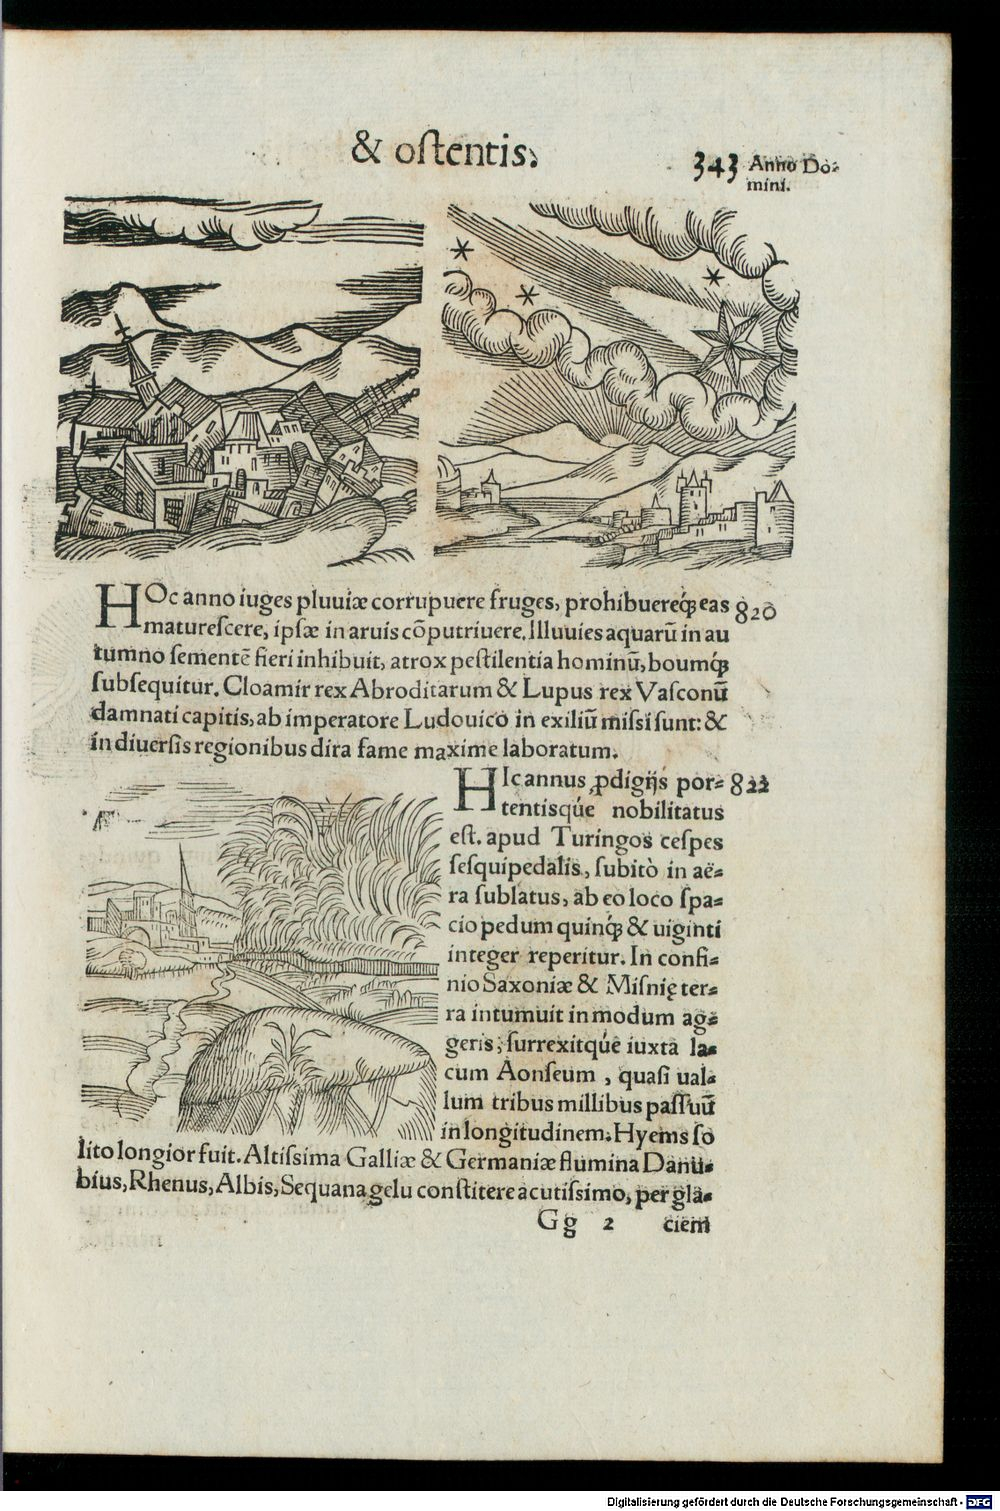 & ostentis.
343 Anno Do-
mini.
HOc anno iuges pluuiæ corrupuere fruges, prohibuereq́; eas 820
maturescere, ipsæ in aruis cōputriuere. Illuuies aquarū in au
tumno sementē fieri inhibuit, atrox pestilentia hominū, boumq́;
subsequitur. Cloamir rex Abroditarum & Lupus rex Vasconū
damnati capitis, ab imperatore Ludouico in exiliū missi sunt: &
in diuersis regionibus dira fame maxime laboratum.
HIc annus ꝓdigijs por- 822
tentisqúe nobilitatus
est. apud Turingos cespes
sesquipedalis, subitò in aë-
ra sublatus, ab eo loco spa-
cio pedum quinq́; & uiginti
integer reperitur. In confi-
nio Saxoniæ & Misnię ter-
ra intumuit in modum ag-
geris, surrexitqúe iuxta la-
cum Aonseum, quasi ual-
lum tribus millibus passuū
in longitudinem. Hyems so
lito longior fuit. Altissima Galliæ & Germaniæ flumina Danu-
bius, Rhenus, Albis, Sequana gelu constitere acutissimo, per gla-
Gg 2 ciem
Digitalisierung gefördert durch die Deutsche Forschungsgemeinschaft - DFG